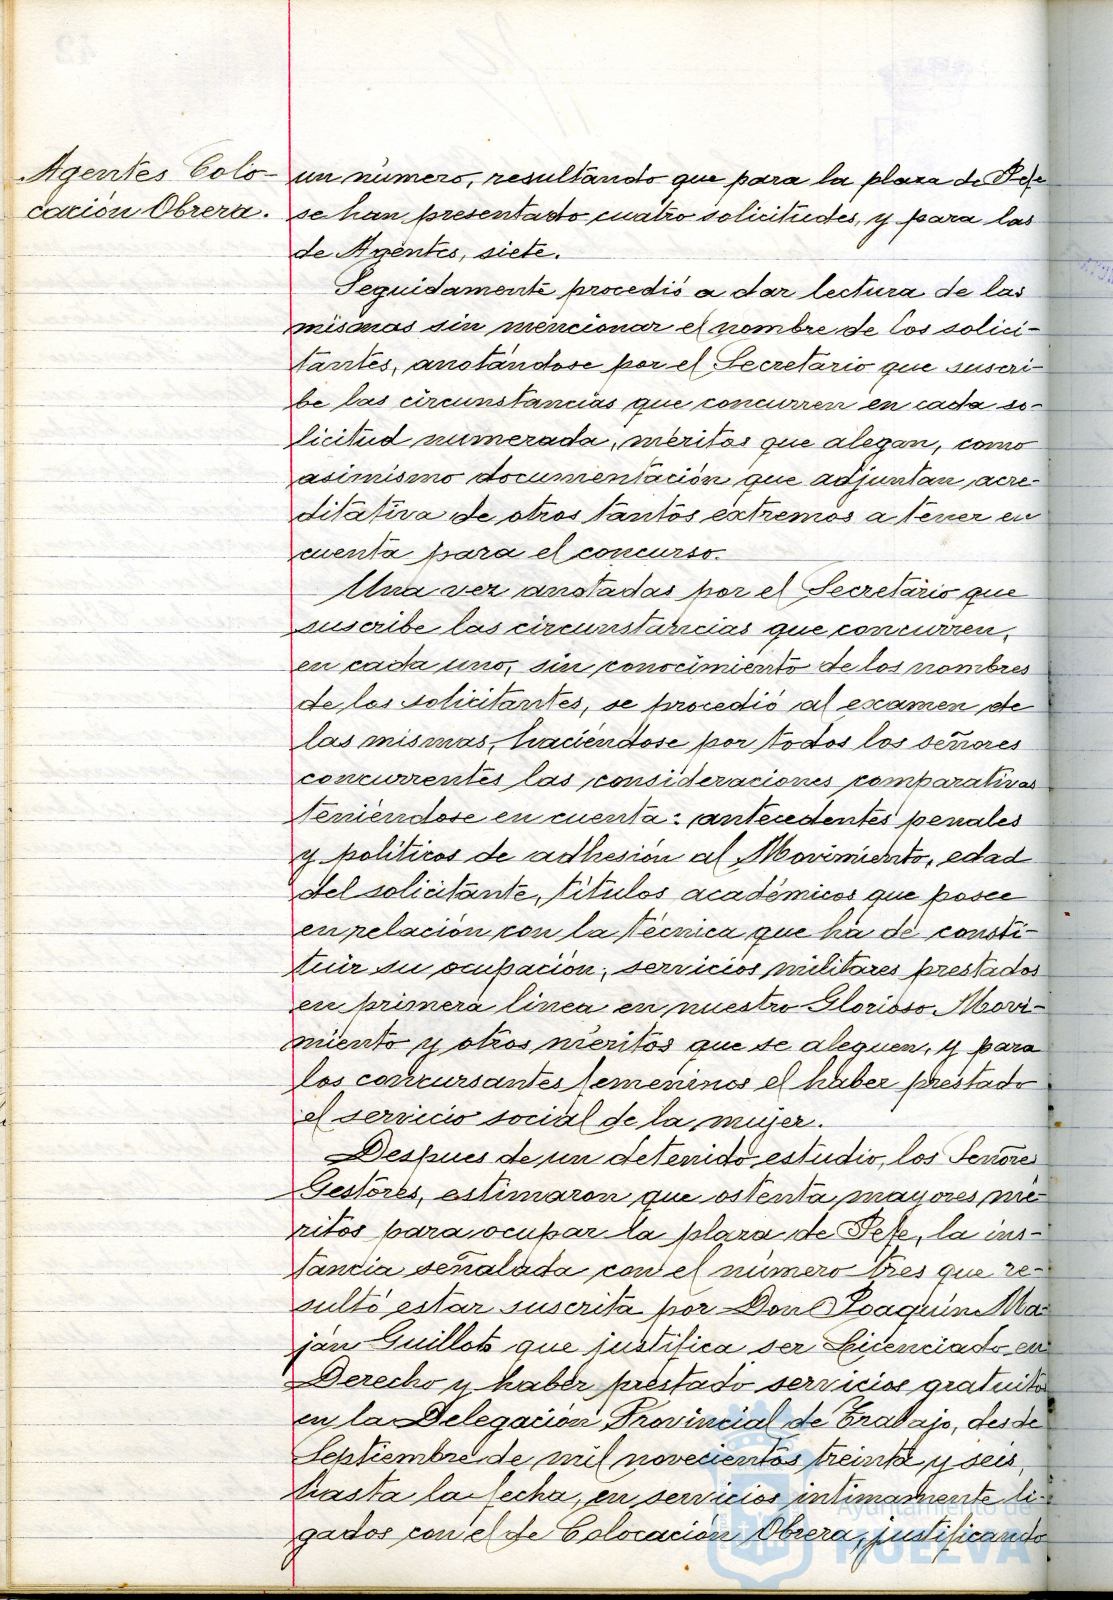 Agentes Colo-
cación Obrera.
un número, resultando que para la plaza de Jefe
se han presentado cuatro solicitudes, y para las
de Agentes, siete.
Seguidamente procedió a dar lectura de las
mismas sin mencionar el nombre de los solici-
tantes, anotándose por el Secretario que suscri-
be las circunstancias que concurren en cada so-
licitud numerada, méritos que alegan, como
asimismo documentación que adjuntan acre-
ditativa de otros tantos extremos a tener en
cuenta para el concurso.
Una vez anotadas por el Secretario que
suscribe las circunstancias que concurren,
en cada uno, sin conocimiento de los nombres
de los solicitantes, se procedió al examen de
las mismas, haciéndose por todos los señores
concurrentes las consideraciones comparativas
teniéndose en cuenta: antecedentes penales
y políticos de adhesión al Movimiento, edad
del solicitante, títulos académicos que posee
en relación con la técnica que ha de consti-
tuir su ocupación, servicios militares prestados
en primera linea en nuestro Glorioso Movi-
miento y otros méritos que se aleguen, y para
los concursantes femeninos el haber prestado
el servicio social de la mujer.
Despues de un detenido estudio, los Señores
Gestores, estimaron que ostenta mayores mé-
ritos para ocupar la plaza de Jefe, la ins-
tancia señalada con el número tres que re-
sultó estar suscrita por Don Joaquín Ma-
ján Guillot que justifica ser Licenciado en
Derecho y haber prestado servicios gratuitos
en la Delegación Provincial de Trabajo, desde
Septiembre de mil novecientos treinta y seis,
hasta la fecha, en servicios intimamente li-
gados con el de Colocación Obrera, justificando
Ayuntamiento de
HUELVA